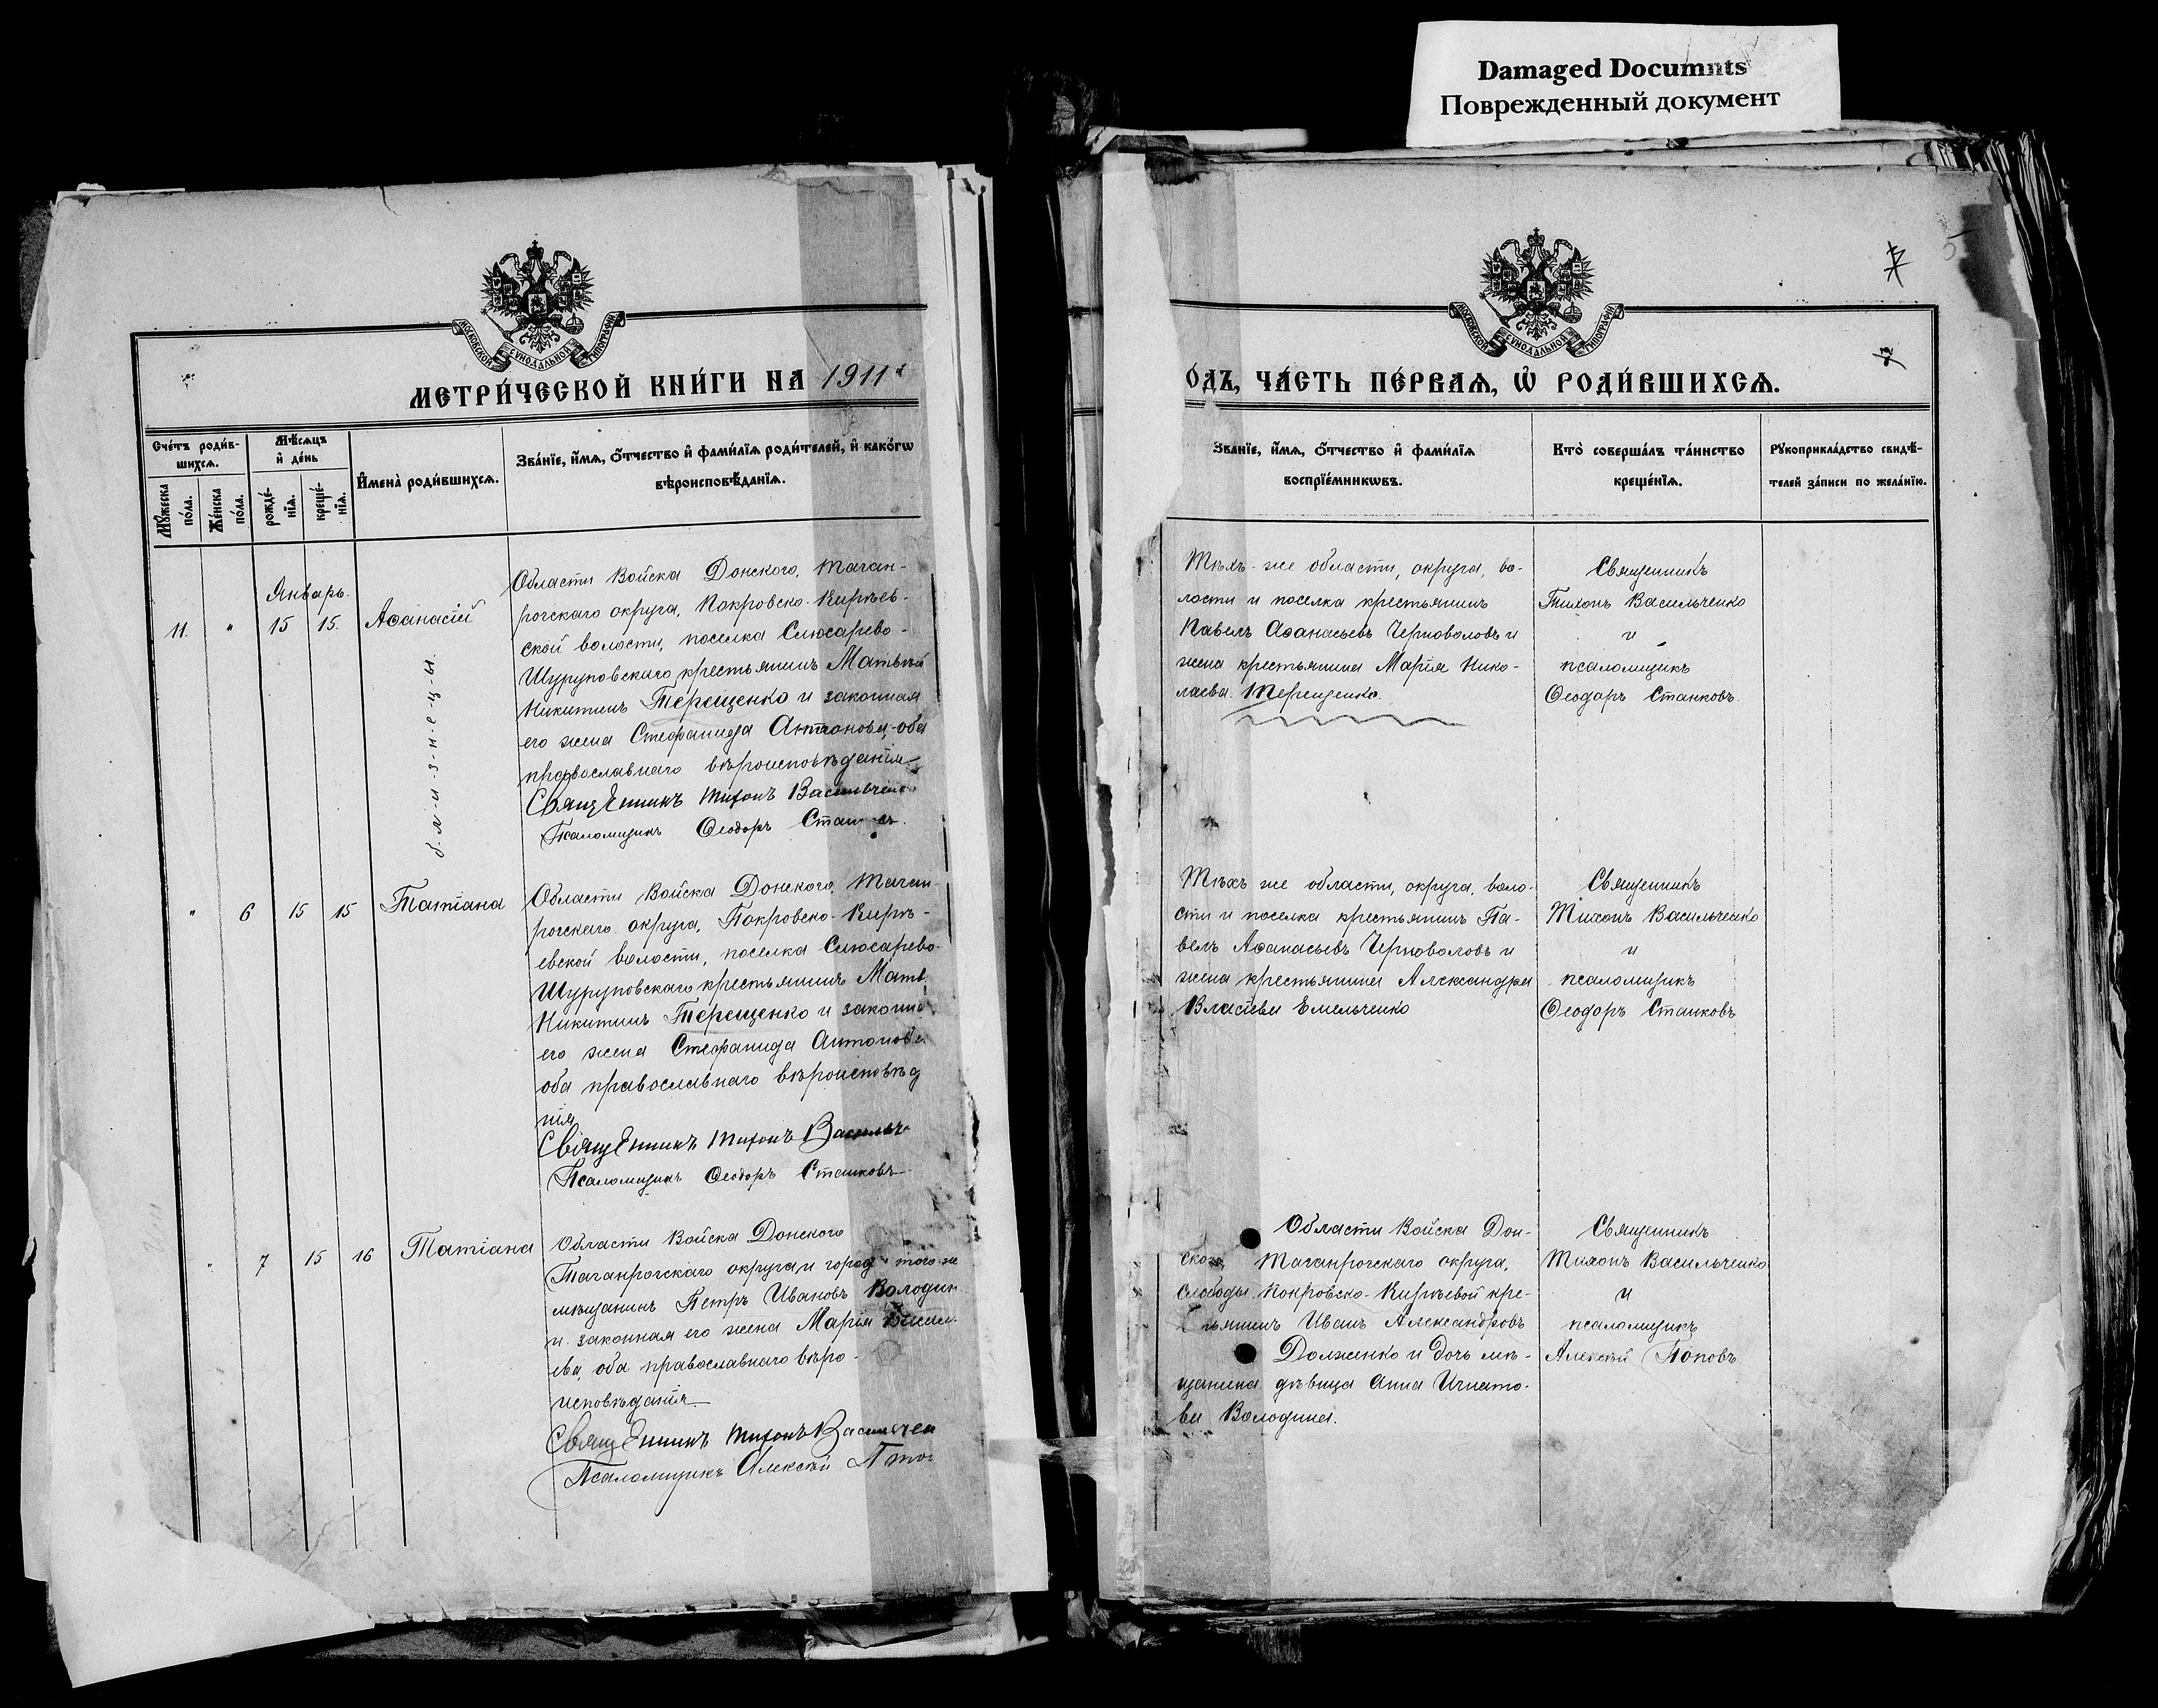 Damaged Documnts
Поврежденный документ
МОСКОВСКОЙ СУНОДАЛЬНОЙ ТИПОГРАФІИ
МЕТРИ́ЧЕСКОЙ КНИ́ГИ НА 1911
Сче́тъ роди́в-
шихсѧ.
Мꙋ́жеска
по́ла.
Же́нска
по́ла.
Мѣ́сѧцъ
и҆ де́нь
рожде́-
нїѧ.
креще́-
нїѧ.
И҆мена̀ роди́вшихсѧ.
Зва́нїе, и҆́мѧ, ѻ҆́тчество и҆ фами́лїѧ роди́телей, и҆ како́гѡ
вѣроисповѣ́данїѧ.
Январь.
11.
"
15
15.
Аѳанасій
б-л-и-з-н-е-ц-ы.
Области Войска Донского, Таган-
рогскаго округа, Покровско-Кирѣев-
ской волости, поселка Слюсарево-
Шуруповскаго крестьянинъ Матвѣй
Никитинъ Терещенко и законная
его жена Стефанида Антонова, оба
православнаго вѣроисповѣданія
Священникъ Тихонъ Васильченко
Псаломщикъ Ѳеодоръ Станковъ.
"
6
15
15
Татіана
Области Войска Донского, Таган-
рогскаго округа, Покровско-Кирѣ-
евской волости, поселка Слюсарево-
Шуруповскаго крестьянинъ Матв
Никитинъ Терещенко и законна
его жена Стефанида Антонова
оба православнаго вѣроисповѣд
нія
Священникъ Тихонъ Васильч
Псаломщикъ Ѳеодоръ Станковъ
"
7
15
16
Татіана
Области Войска Донского
Таганрогскаго округа и города того-же
мѣщанинъ Петръ Ивановъ Володин
и законная его жена Марія
ева, оба православнаго вѣро-
исповѣданія
Священникъ Тихонъ Васильчен
Псаломщикъ Алексѣй
МОСКОВСКОЙ СУНОДАЛЬНОЙ ТИПОГРАФІИ
5
О́ДЪ, ЧА́СТЬ ПЕ́РВАѦ, Ѡ҆ РОДИ́ВШИХСѦ.
Зва́нїе, и҆́мѧ, ѻ҆́тчество и҆ фами́лїѧ
воспрїе́мникѡвъ.
Кто̀ соверша́лъ та́инство
креще́нїѧ.
Рꙋкоприкла́дство свидѣ́-
телей за́писи по жела́нїю.
Тѣхъ-же области, округа, во-
лости и поселка крестьянинъ
Павелъ Аѳанасьевъ Черноволовъ и
жена крестьянина Марія Нико-
лаева Терещенко.
Священникъ
Тихонъ Васильченко
и
псаломщикъ
Ѳеодоръ Станковъ.
Тѣхъ же области, округа, воло-
сти и поселка крестьянинъ Па-
велъ Аѳанасьевъ Черноволовъ и
жена крестьянина Александра
Власіева Емельченко
Священникъ
Тихонъ Васильченко
и
псаломщикъ
Ѳеодоръ Станковъ
Области Войска Дон-
ского, Таганрогскаго округа,
слободы Покровско-Кирѣевой кре-
тьянинъ Иванъ Александровъ
Долженко и дочь мѣ-
щанина дѣвица Анна Игнато-
ва Володина.
Священникъ
Тихонъ Васильченко
и
псаломщикъ
Алексѣй Поповъ